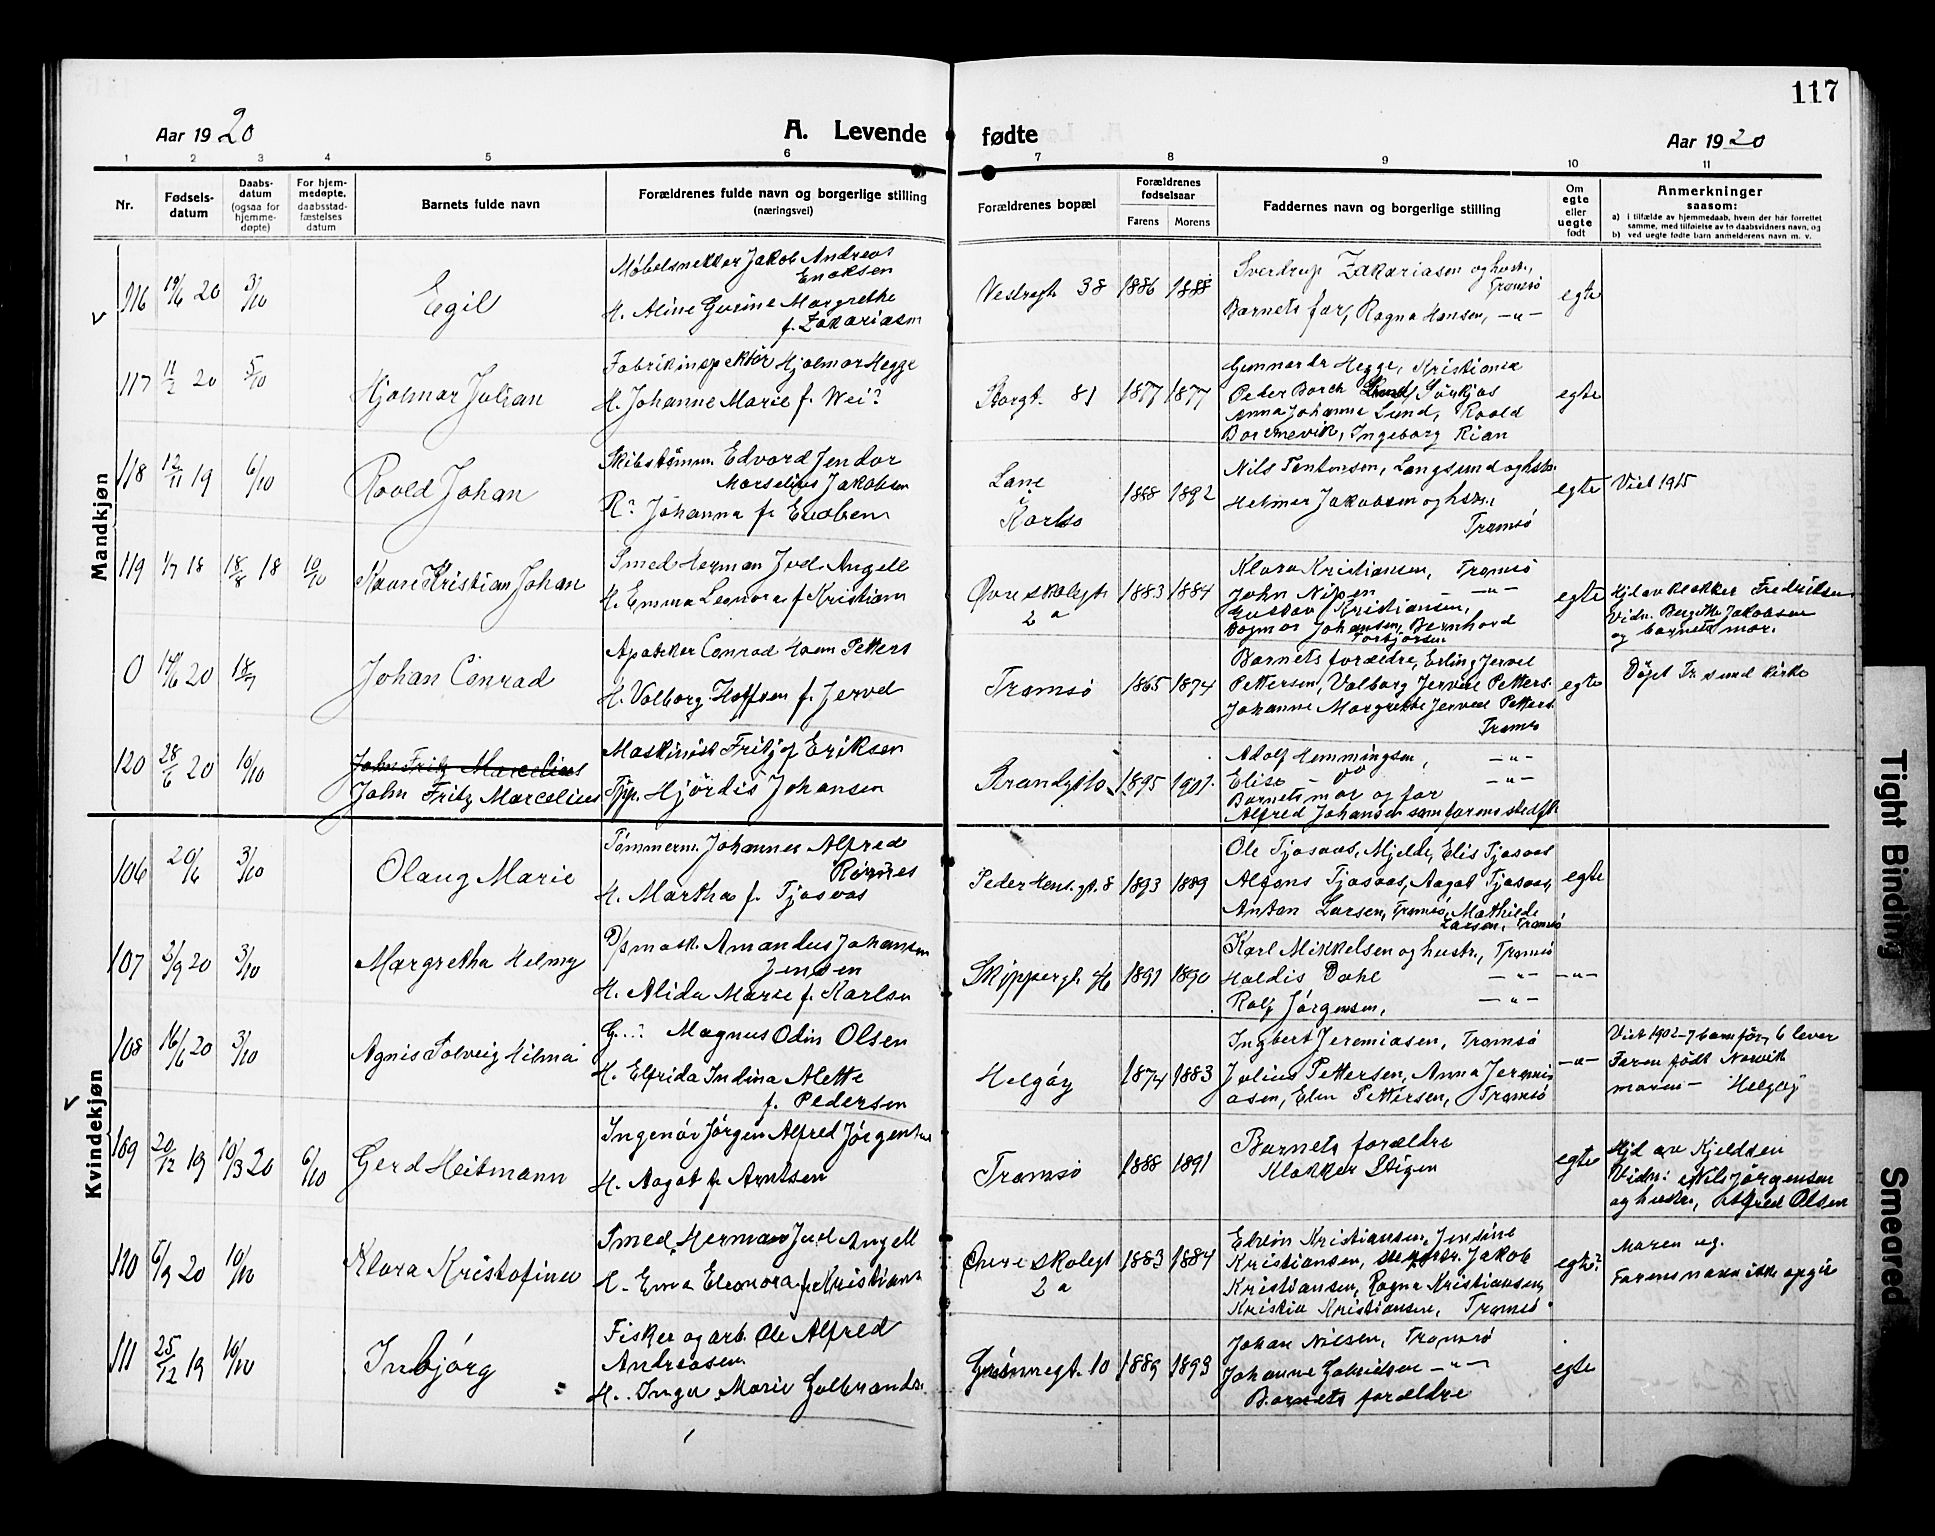 117
Aar 1920
A. Levende fødte
Aar 1920
1 2 3 4 5 6 7 8 9 10 11
Nr.
Fødsels-
datum
Daabs-
datum
(ogsaa for
hjemme-
døpte)
For hjem-
medøpte,
daabsstad-
fæstelses
datum
Barnets fulde navn
Forældrenes fulde navn og borgerlige stilling
(næringsvei)
Forældrenes bopæl
Forældrenes
fødselsaar
Farens Morens
Faddernes navn og borgerlige stilling
Om
egte
eller
uegte
født
Anmerkninger
saasom:
a) i tilfælde av hjemmedaab, hvem der har forrettet
samme, med tilføielse av to daabsvidners navn, og
b) ved uegte fødte barn anmelderens navn m. v.
Mandkjøn
116 19/6 20 3/10 Egil
Møbelsnekker Jakob Andreas
Enoksen
H. Aline Gurine Margrethe
f. Zakariasen
Vestregt. 38 1886 1888
Sverdrup Zakariasen og hustr.,
Tromsø
Barnets far, Ragna Hansen, -"-
egte
117 11/2 20 5/10 Hjalmar Julian
Fabrikinspektør Hjalmar Hegge
H. Johanne Marie f. Wei?
Storgt. 81 1877 1877
Hegge, Kristiania
Peder Borch Lund, Sørkjos
Anna Johanne Lund, Roald
Ingeborg Rian
egte
118 12/11 19 6/10 Roald Johan
Skibstømm. Edvard Jendor
Marselius Jakobsen
R? Johanna f. Evaben
Lane
i
Karlsø
1888 1892
Nils Tentonsen, Langsund og hstr.
Helmer Jakobsen og hstr.,
Tromsø
egte
Viet 1915
119 1/7 18 18/8 18 10/10 Kaare Kristian Johan
Smed Herman Jvd. Angell
H. Emma Leonora f. Kristians
Øvre skolegt.
2 a
1883 1884
Klara Kristiansen, Tromsø
John Nipen -"-
Gustav Kristiansen,
Dagmar Johansen, Bernhard
Torbjørsen
egte
Hjd av klokker Fredriksen
Vidn. Bergitte Jakobsen
og barnets mor.
0 14/6 20 18/7 Johan Conrad
Apoteker Conrad Holm Petters
H. Valborg Steffsen f. Jervel
Tromsø 1865 1874
Barnets forældre, Erling Jervel
Pettersen, Valborg Jervel Petters.
Johanne Margrethe Jervel Petters.
Tromsø
egte
Døpt Tr.sund kirke
120 28/6 20 10/10
John Fritz Marcelius
John Fritz Marcelius
Maskinist Fritjof Eriksen
Tjp. Hjørdis Johansen
Strandgt. 10 1895 1901.
Adolf Hemmingsen, -"-
Elise - do -"-
Barnets mor og far
Alfred Johansen som farens stedf.
Kvindekjøn
106 20/6 3/10 Olaug Marie
Tømmerm. Johannes Alfred
H. Martha f. Tjosvos
Peder Hens.gt. 8 1893 1889
Ole Tjosvos, Mjelde, Elis Tjosvos
Alfons Tjosvos, Aagot Tjosvos,
Anton Larsen, Tromsø, Mathilde
Larsen, Tromsø
egte
107 3/9 20 3/10 Margretha Helmy
D/smask. Amandus Johansen
Jensen
H. Alida Marie f. Karlsen
Skippergt. 4 1891 1890
Karl Mikkelsen og hustr., Tromsø
Haldis Dahl -"-
Rolf Jørgensen, -"-
-"-
108 16/6 20 3/10 Agnis Solveig Hilma
G...? Magnus Odin Olsen
H. Elfrida Indina Alette
f. Pedersen
Helgøy 1874 1883
Ingbert Jeremiasen, Tromsø
Julius Pettersen, Anna Jeremi-
asen, Elen Pettersen, Tromsø
-"-
Viet 1902 - 7 barn før, 6 lever
Faren født Narvik
moren - Helgøy
109 20/12 19 10/3 20 6/10 Gerd Heitmann
Ingeniør Jørgen Alfred Jørgensen
H. Aagot f. Arntsen
Tromsø 1888 1891
Barnets forældre
Klokker Stigen
egte
Hjd av Kjeldsen
Vidn: Nils Jørgensen
og hustr., Alfred Olsen
110 5/9 20 10/10 Klara Kristofine
Smed Herman Jvd. Angell
H. Emma Eleonora f. Kristians
Øvre skolegt
2 a
1883 1884
Edvin Kristiansen, Jensine
Kristiansen, Jakob
Kristiansen, Ragna Kristiansen,
Kristia Kristiansen, Tromsø.
egte?
Moren ug.
Farens navn ikke opgit
111 25/12 19 10/10 Inbjørg
Fisker og arb. Ole Alfred
Andreasen
H. Inga Marie Gulbrands.
Grønnegt. 10 1889 1893
Johan Nilsen, Tromsø
Johanne Gabrielsen -"-
Barnets forældre
egte
Tight Binding
Smeared